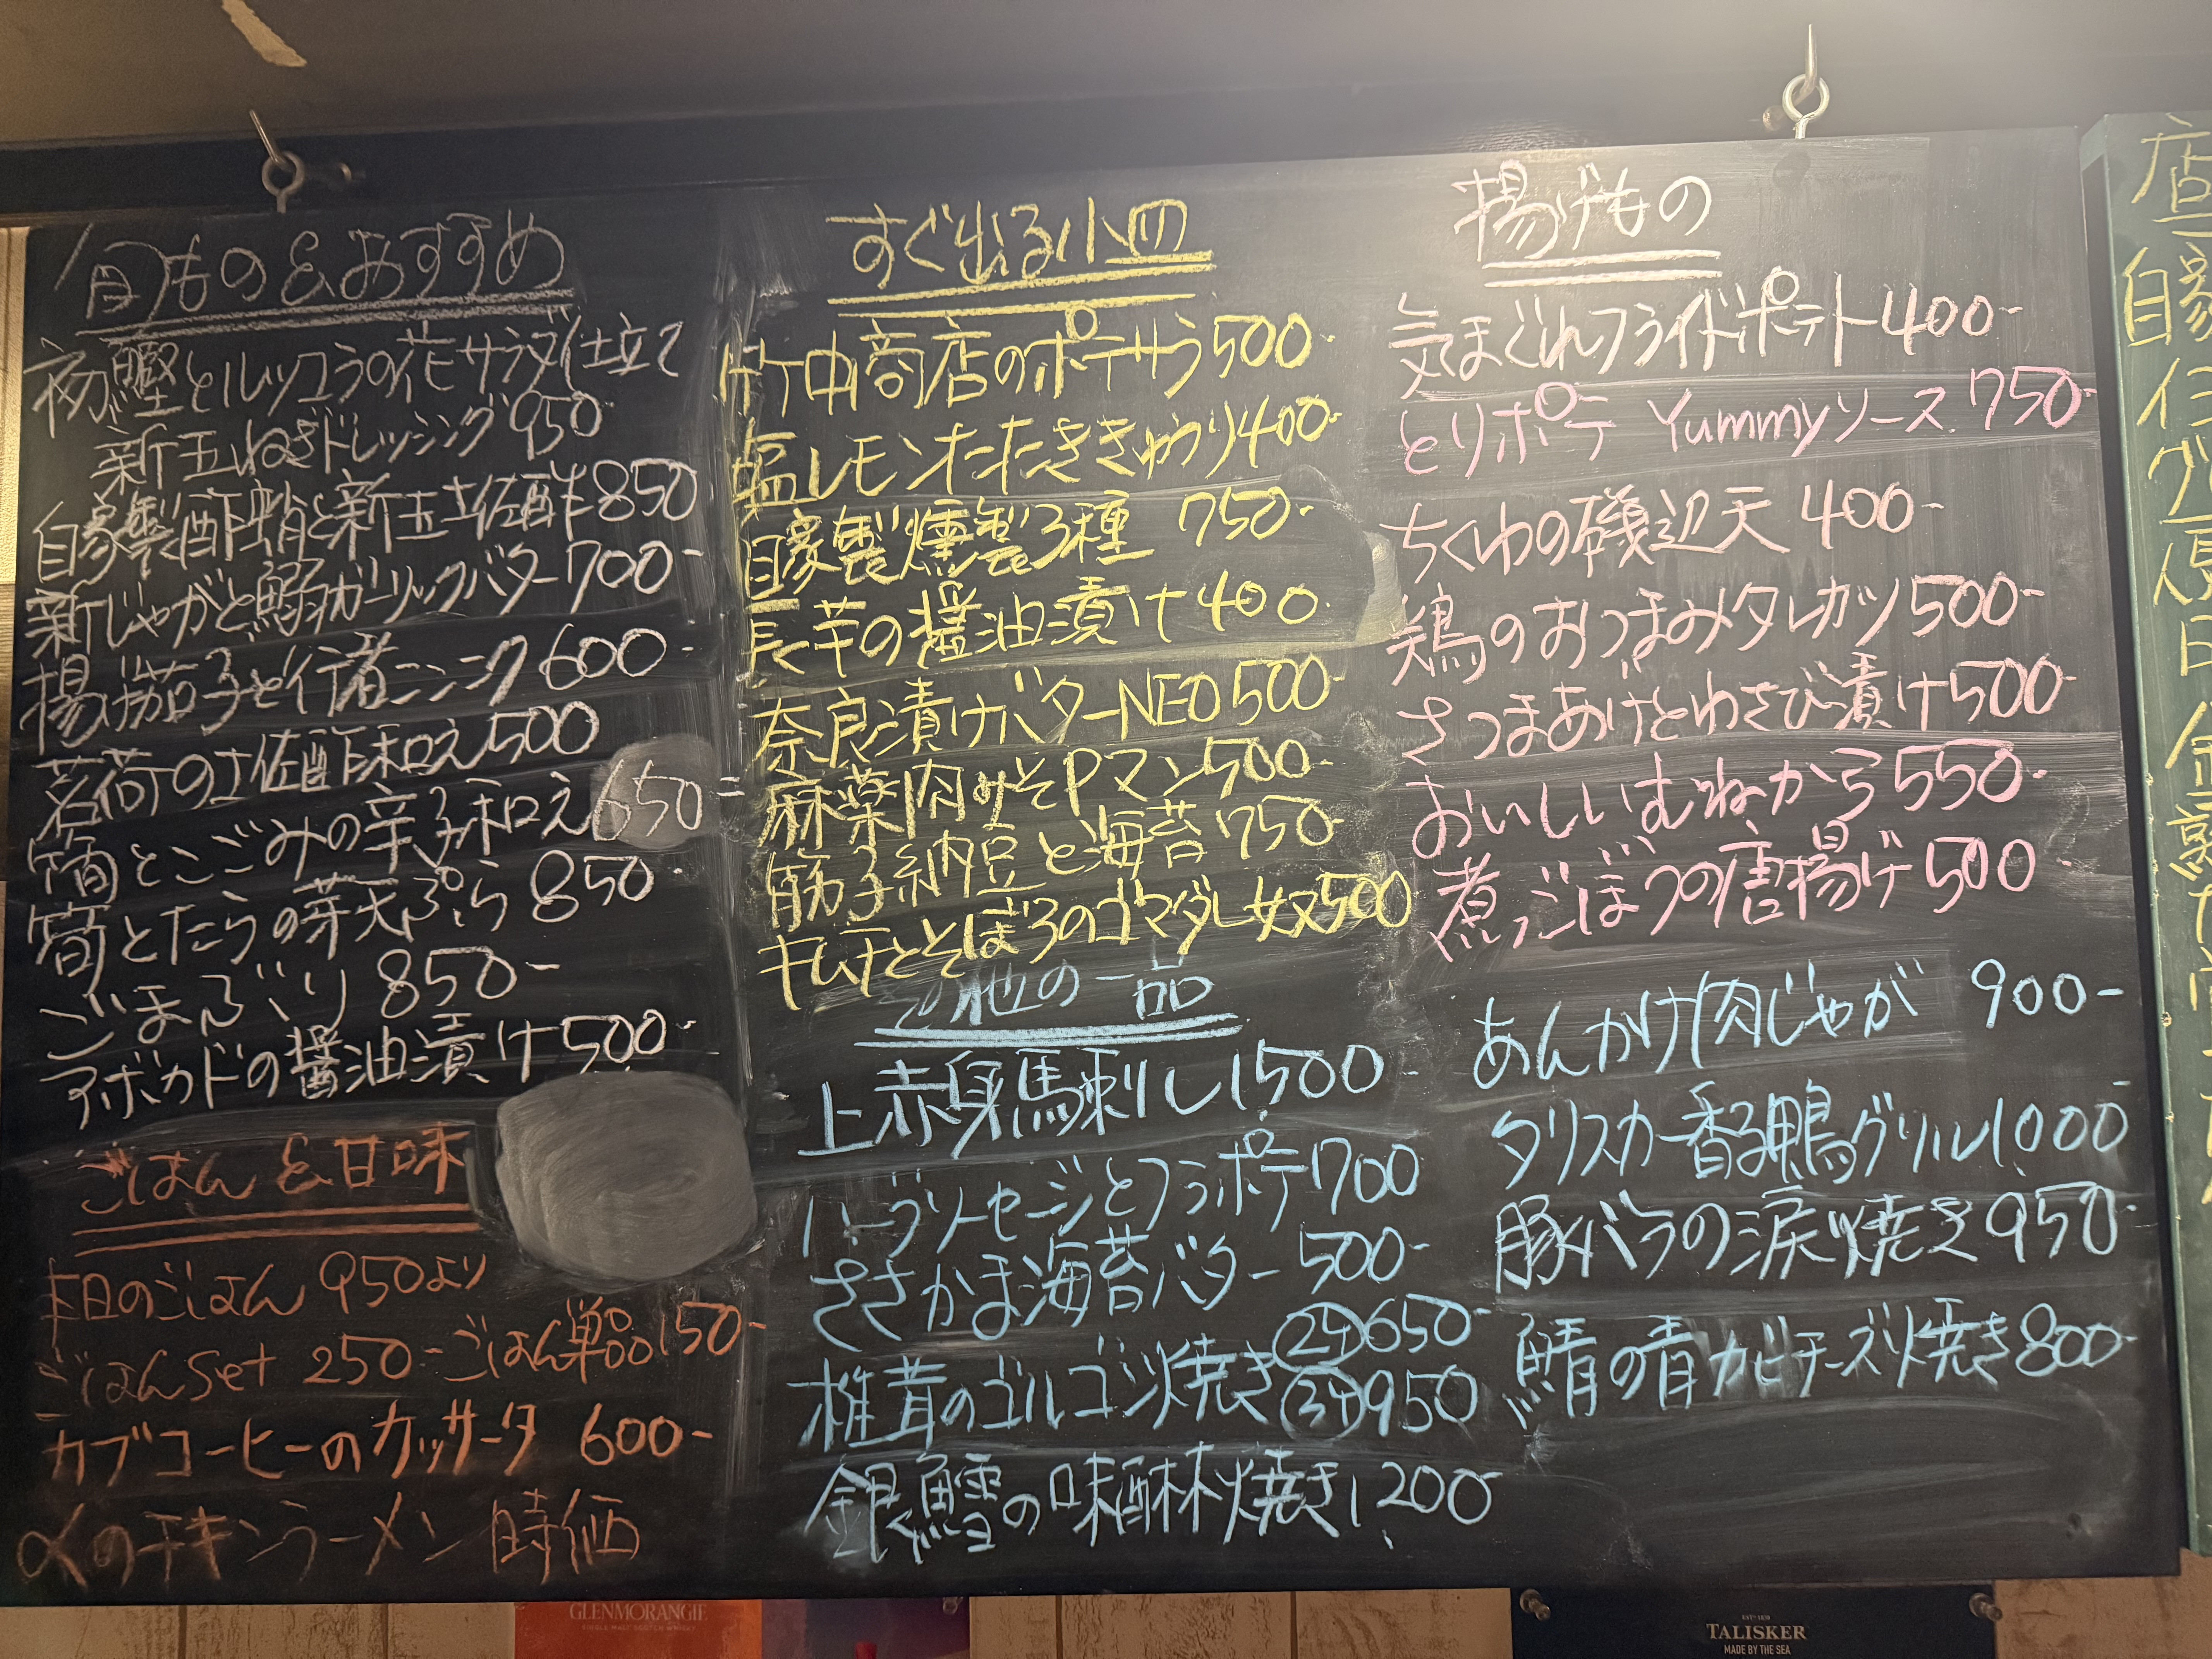 旬もの&おすすめ
初鰹とルッコラの花サラダ仕立て
新玉ねぎドレッシング 950-
自家製酢蛸と新玉土佐酢 850
新じゃがと鰯ガーリックバター 700-
揚げ茄子と行者ニンニク 600-
茗荷の土佐酢和え 500
筍とこごみの辛子和え 650-
筍とたらの芽天ぷら 850-
ごまぶり 850-
アボカドの醤油漬け 500-
ごはん&甘味
本日のごはん 950より
ごはんset 250- ごはん単品 150-
カブコーヒーのカッサータ 600-
〆のチキンラーメン 時価
すぐ出る小皿
竹中商店のポテサラ 500-
塩レモンたたききゅうり 400-
自家製燻製3種 750-
長芋の醤油漬け 400-
奈良漬けバターNEO 500-
麻薬肉みそPマン 500-
筋子納豆と海苔 750-
キムチとそぼろのゴマダレ奴 500
その他の一品
上赤身馬刺し 1,500-
ハーブソーセージとフラポテ 700
ささかま海苔バター 500-
椎茸のゴルゴンゾ焼き 2ケ 650-
3ケ 950
銀鱈の味醂焼き 1,200-
揚げもの
気まぐれフライドポテト 400-
とりポテ Yummyソース 750-
ちくわの磯辺天 400-
鶏のおつまみタレカツ 500-
さつまあげとわさび漬け 500-
おいしいむねから 550-
煮ごぼうの唐揚げ 500-
あんかけ肉じゃが 900-
タリスカー香る鴨グリル 1,000-
豚バラの涙焼き 950-
鯖の青カビチーズ焼き 800-
店
自家
GLENMORANGIE
SINGLE MALT SCOTCH WHISKY
TALISKER
MADE BY THE SEA